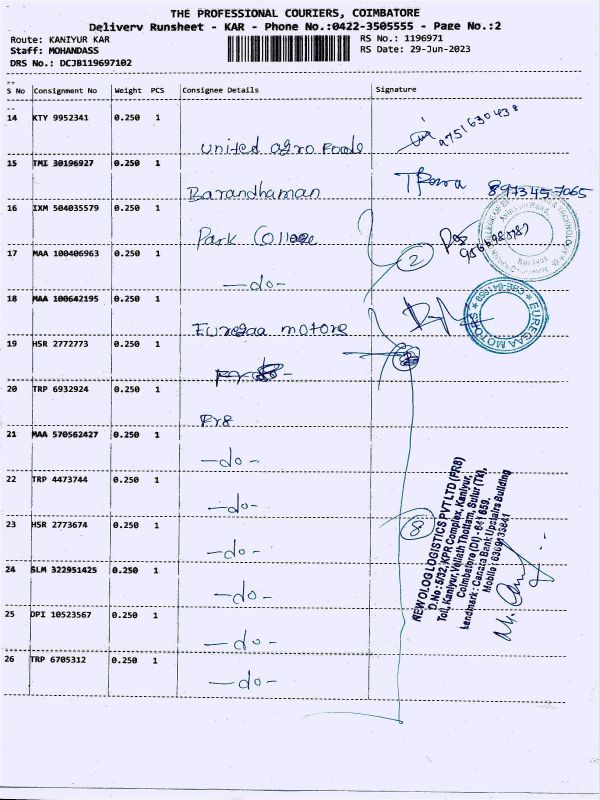 THE PROFESSIONAL COURIERS, COIMBATORE
Delivery Runsheet - KAR - Phone No.:0422-3505555 - Page No.:2
Route: KANIYUR KAR
RS No.: 1196971
Staff: MOHANDASS
RS Date: 29-Jun-2023
DRS No.: DCJB119697102
S No Consignment No Weight PCS Consignee Details Signature
14 KTY 9952341 0.250 1
United agro Foods
9751630438
15 TMI 30196927 0.250 1
Barandhaman
8973457065
16 IXM 504035579 0.250 1
Park College
17 MAA 100406963 0.250 1
-do-
2
Kaniyur
18 MAA 100642195 0.250 1
Euregaa motors
EUREGAA MOTORS
19 HSR 2772773 0.250 1
20 TRP 6932924 0.250 1
Pr8
21 MAA 570562427 0.250 1
-do-
22 TRP 4473744 0.250 1
-do-
23 HSR 2773674 0.250 1
-do-
8
24 SLM 322951425 0.250 1
-do-
25 DPI 10523567 0.250 1
-do-
26 TRP 6705312 0.250 1
-do-
NEWOLOG LOGISTICS PVT LTD (PR8)
D.No: 5/32, KPR Complex, Kaniyur,
Toll, Kaniyur, Vellath Thottam, Sulur (Tk),
Coimbatore (DI) - 641 659.
Landmark: Canara Bank Upstairs Building
Mobile: 6309135841